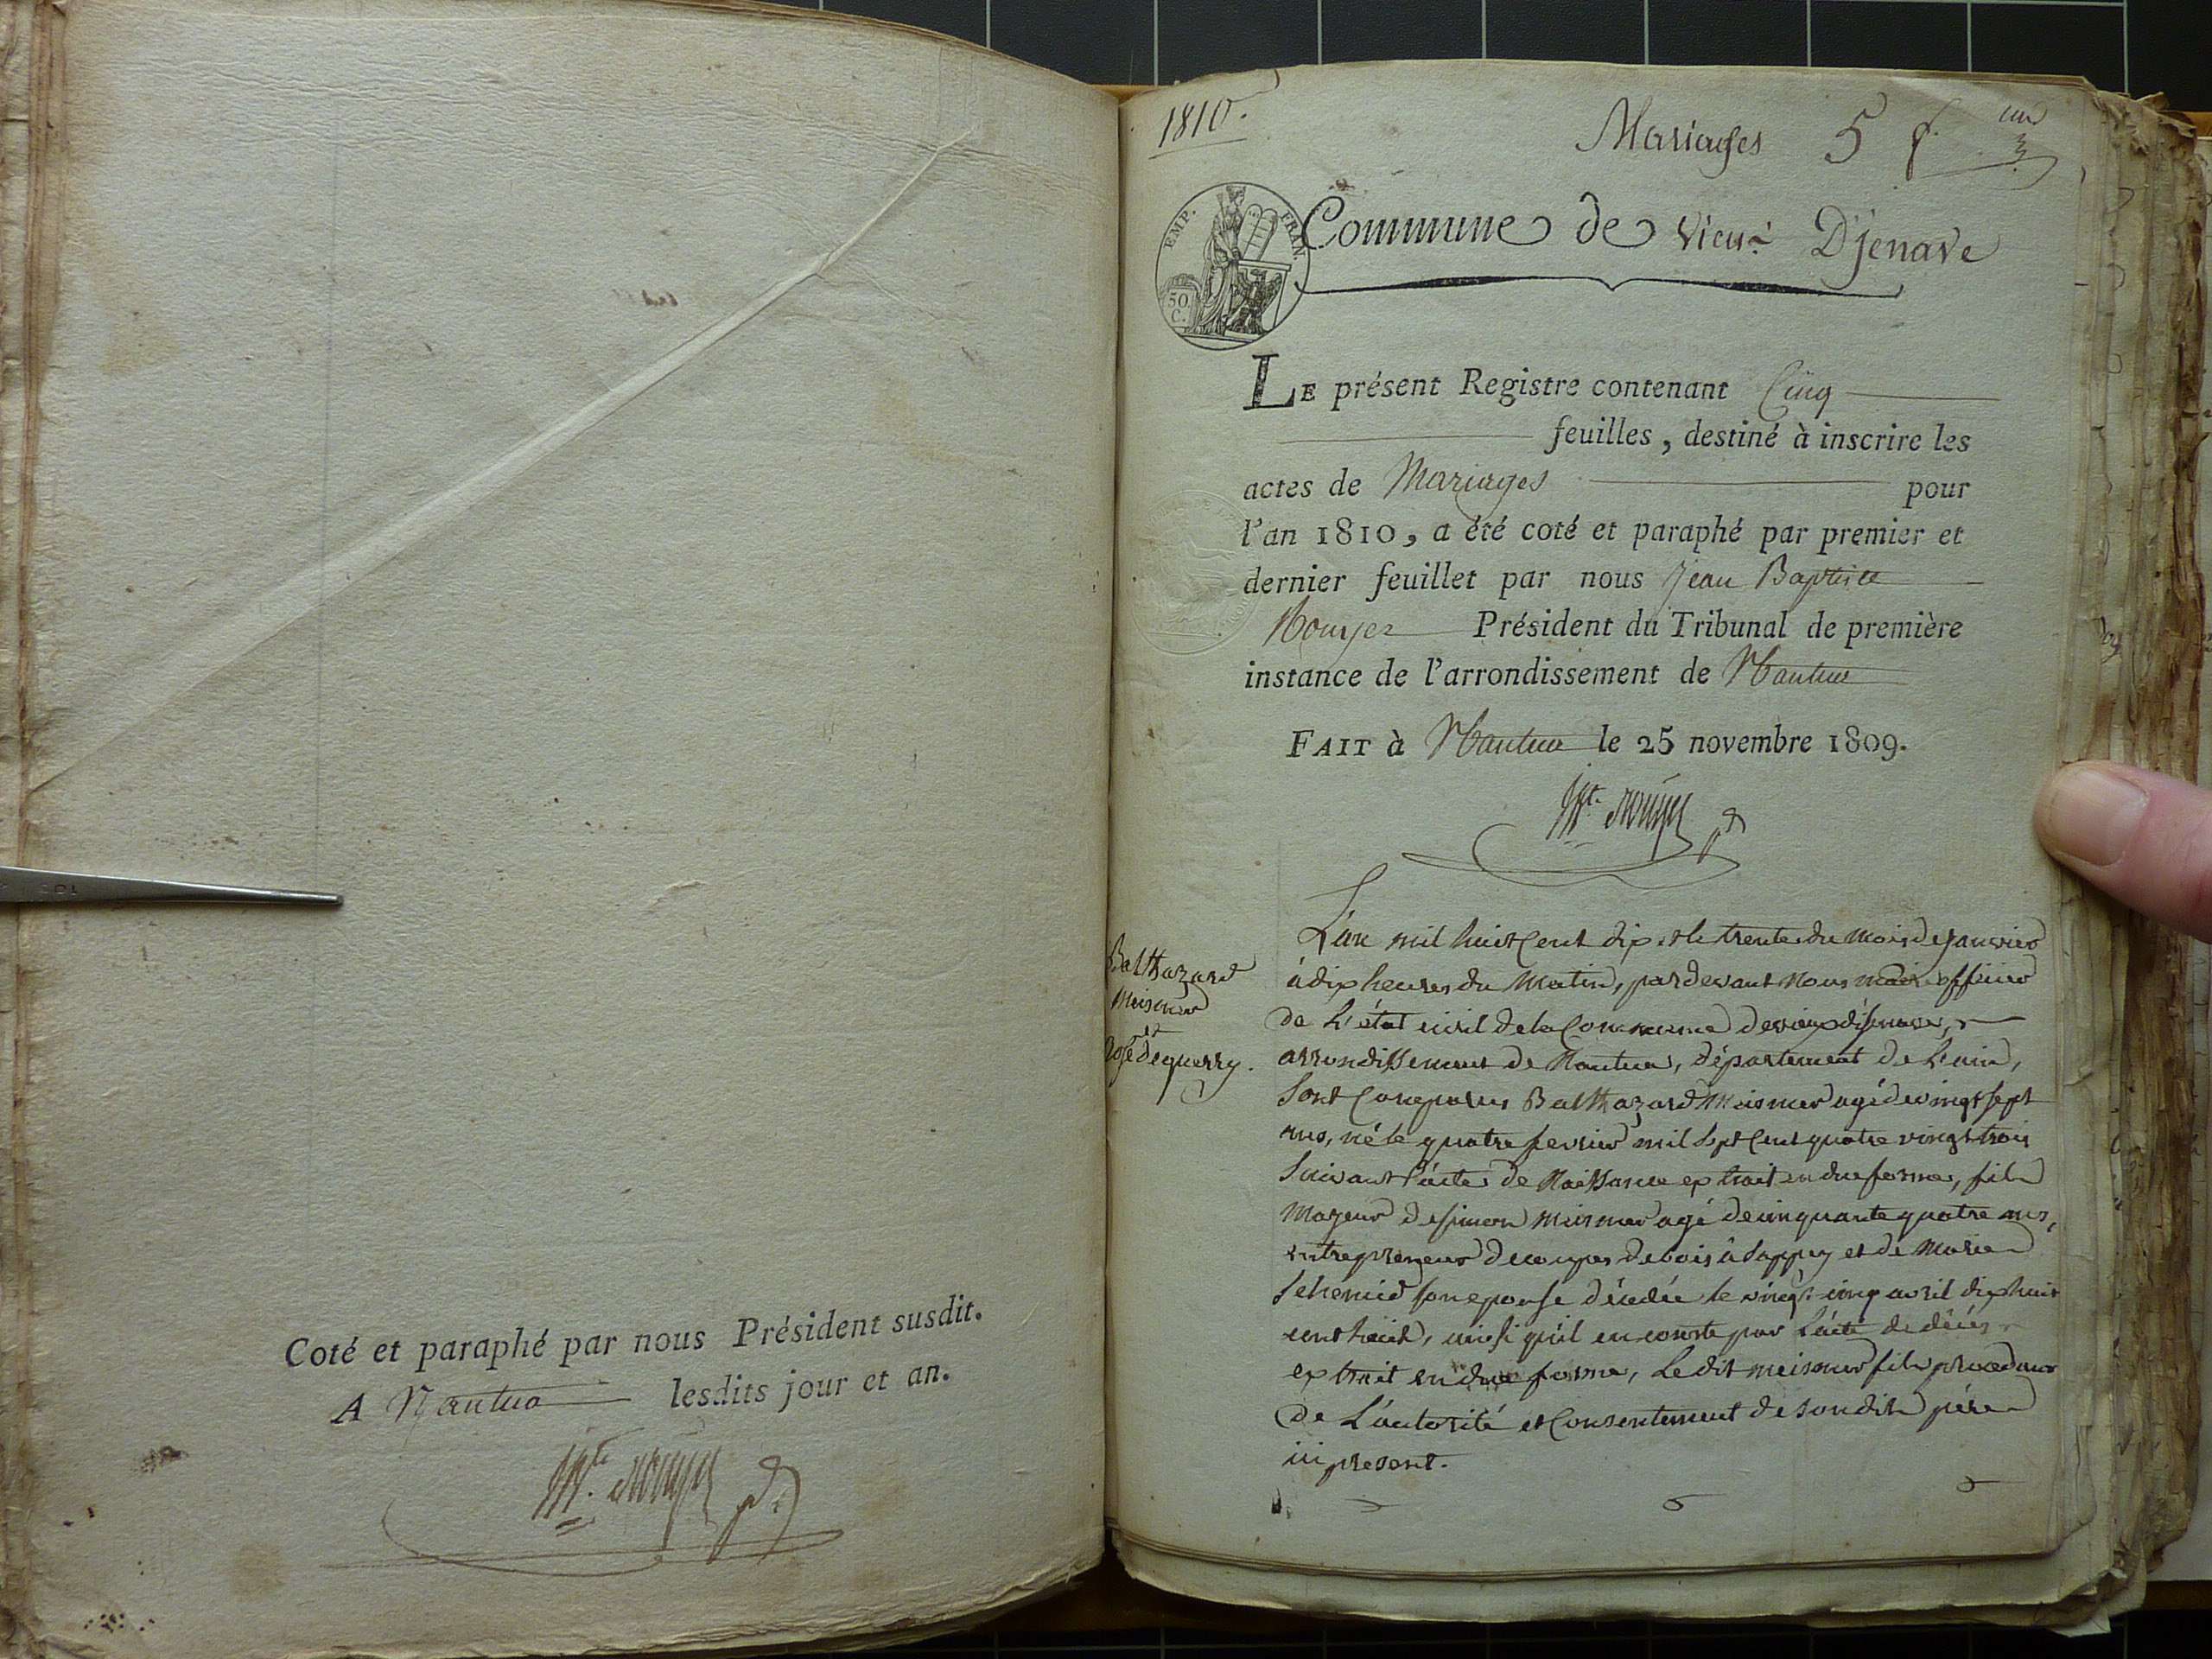 Coté et paraphé par nous Président susdit.
A Nantua lesdits jour et an.
1810.
Mariages 5 f. un
EMP. FRAN.
50 C.
Commune de vieux D'jenave
LE présent Registre contenant Cinq
feuilles, destiné à inscrire les
actes de Mariages pour
l'an 1810, a été coté et paraphé par premier et
dernier feuillet par nous Jean Baptiste
Rouyer Président du Tribunal de première
instance de l'arrondissement de Nantua
FAIT à Nantua le 25 novembre 1809.
Balthazard
meisner
et
dequerry.
L'an mil huit cent dix et le trente du mois de janvier
à dix heures du matin, pardevant nous maire officier
de L'état civil de la Commune de vieux d'jsenave,
arrondissement de Nantua, département de L'ain,
Sont Comparus Balthazard Meisner agé de vingt sept
ans, né le quatre fevrier mil sept cent quatre vingt trois
Suivant l'acte de Naissance extrait en due forme, fils
majeur de simon meisner agé de cinquante quatre ans,
entrepreneur de coupes de bois à Lappey et de Marie
Schemid son epouse décédée le vingt cinq avril dix huit
cent huit, ainsi qu'il en conste par L'acte de décès
extrait en due forme, Le dit meisner fils procedant
de L'autorité et Consentement de son dit père
ici présent.